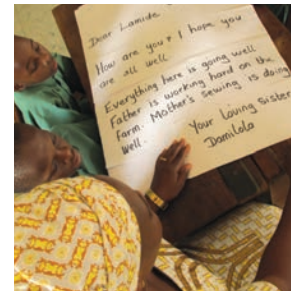 Dear Lamide.
How are you? I hope you
are all well.
Everything here is going well
Father is working hard on the
farm. Mother's sewing is doing
well.
Your loving sister
Damilola